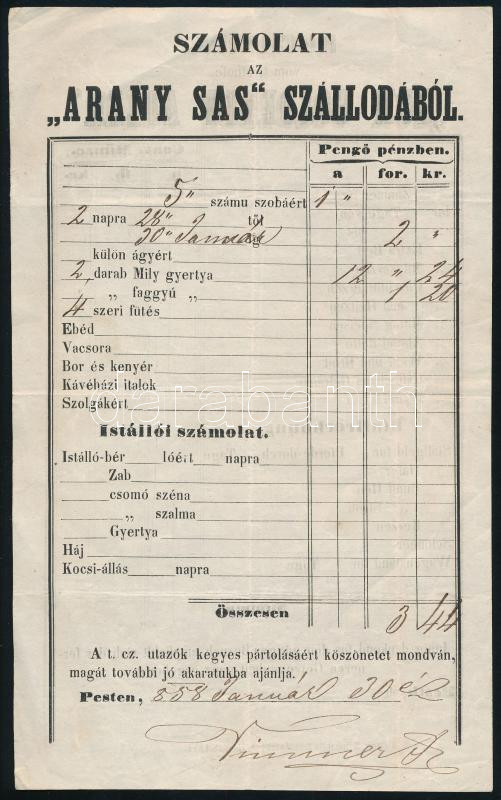 SZÁMOLAT
AZ
„ARANY SAS“ SZÁLLODÁBÓL.
Pengő pénzben.
a for. kr.
5 „ számu szobáért 1 „
2 napra 28 „ től
30 „ Január ig 2 „
„ külön ágyért
2 „ darab Mily gyertya 12 „ 24
„ faggyú „ 1 20
4 szeri fütés
Ebéd
Vacsora
Bor és kenyér
Kávéházi italok
Szolgákért
Istállói számolat.
Istálló-bér lóért napra
Zab
csomó széna
„ szalma
Gyertya
Háj
Kocsi-állás napra
Összesen 3 44
A t. cz. utazók kegyes pártolásáért köszönetet mondván,
magát további jó akaratukba ajánlja.
Pesten, 858 Január 30 én
darabanth